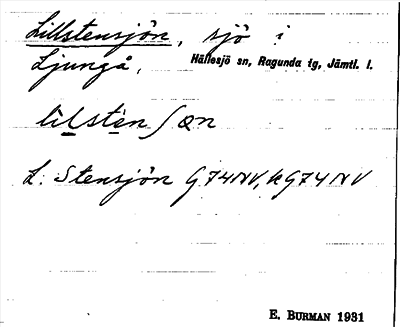 Lillstensjön, sjö i
Ljungå, Hällesjö sn, Ragunda tg, Jämtl. l.
lilsten∫øn
L. Stensjön G74NV, k G74NV
E. BURMAN 1931